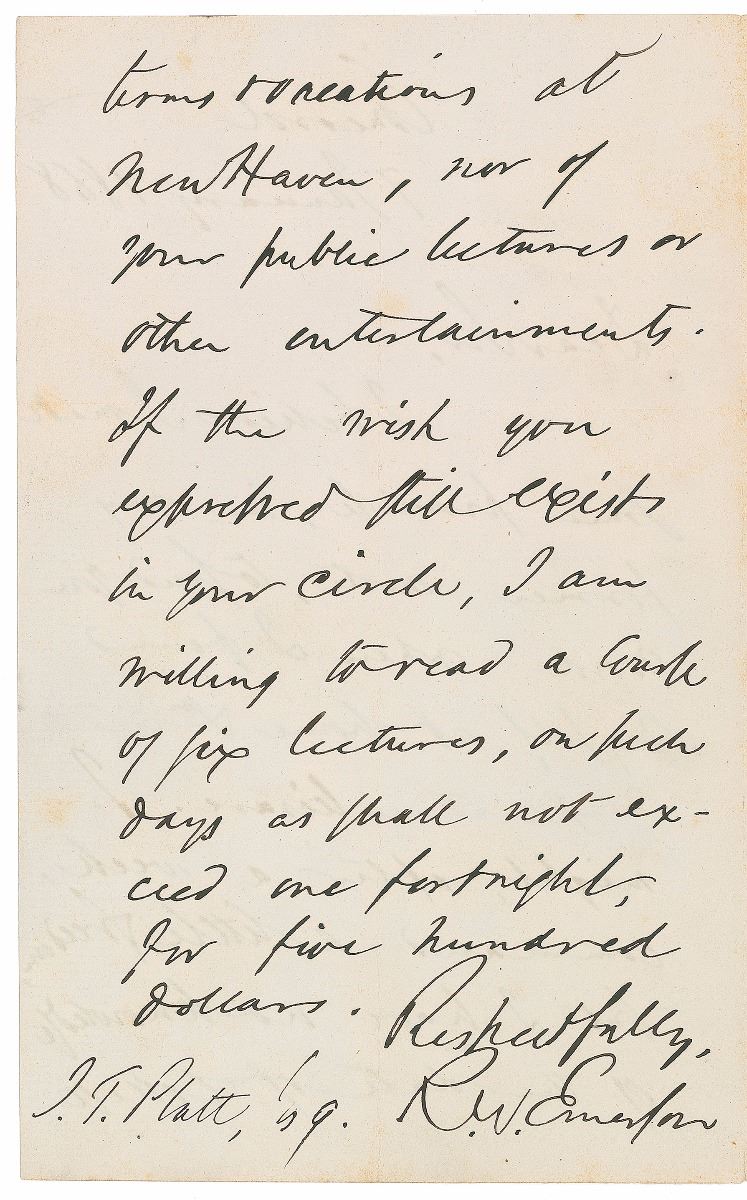 terms & vacations at
New Haven, nor of
your public lectures or
other entertainments.
If the wish you
expressed still exists
in your circle, I am
willing to read a Course
of six lectures, on such
days as shall not ex-
ceed one fortnight,
for five hundred
dollars.
Respectfully,
J. T. Platt, Esq.
R. W. Emerson